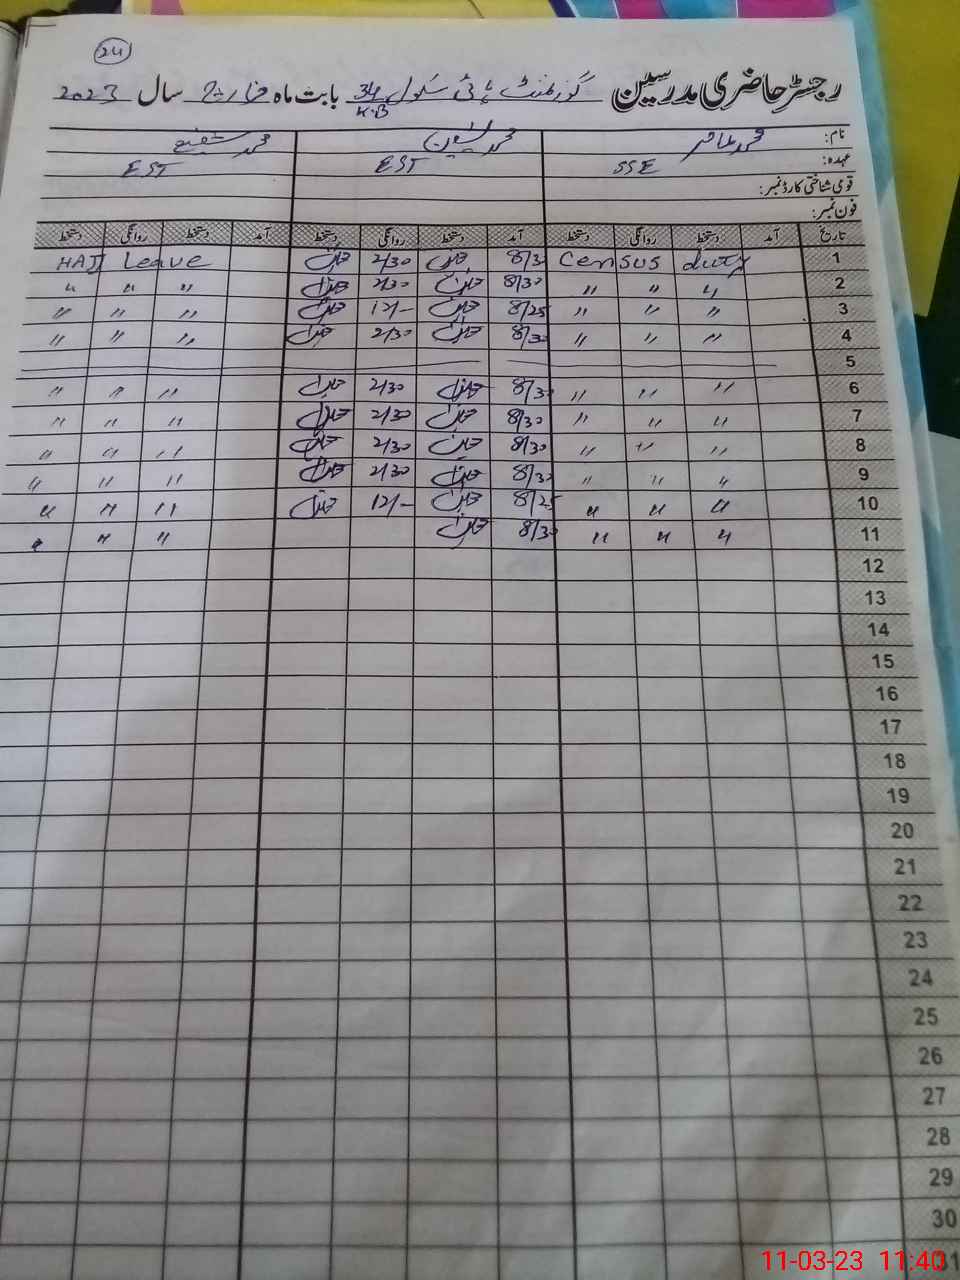 24
رجسٹر حاضری مدرسین گورنمنٹ ہائی سکول 34 K.B بابت ماہ مارچ سال 2023
نام: محمد طاہر محمد یٰسین محمد شفیع
عہدہ: SSE EST EST
قومی شناختی کارڈ نمبر:
فون نمبر:
تاریخ آمد دستخط روانگی دستخط آمد دستخط روانگی دستخط آمد دستخط روانگی دستخط
1 Census duty 8/30 2/30 HAJJ Leave
2 " " " 8/30 2/30 " " "
3 " " " 8/25 12/- " " "
4 " " " 8/30 2/30 " " "
5
6 " " " 8/30 2/30 " " "
7 " " " 8/30 2/30 " " "
8 " " " 8/30 2/30 " " "
9 " " " 8/30 2/30 " " "
10 " " " 8/25 12/- " " "
11 " " " 8/30 " " "
12
13
14
15
16
17
18
19
20
21
22
23
24
25
26
27
28
29
30
31
11-03-23 11:40